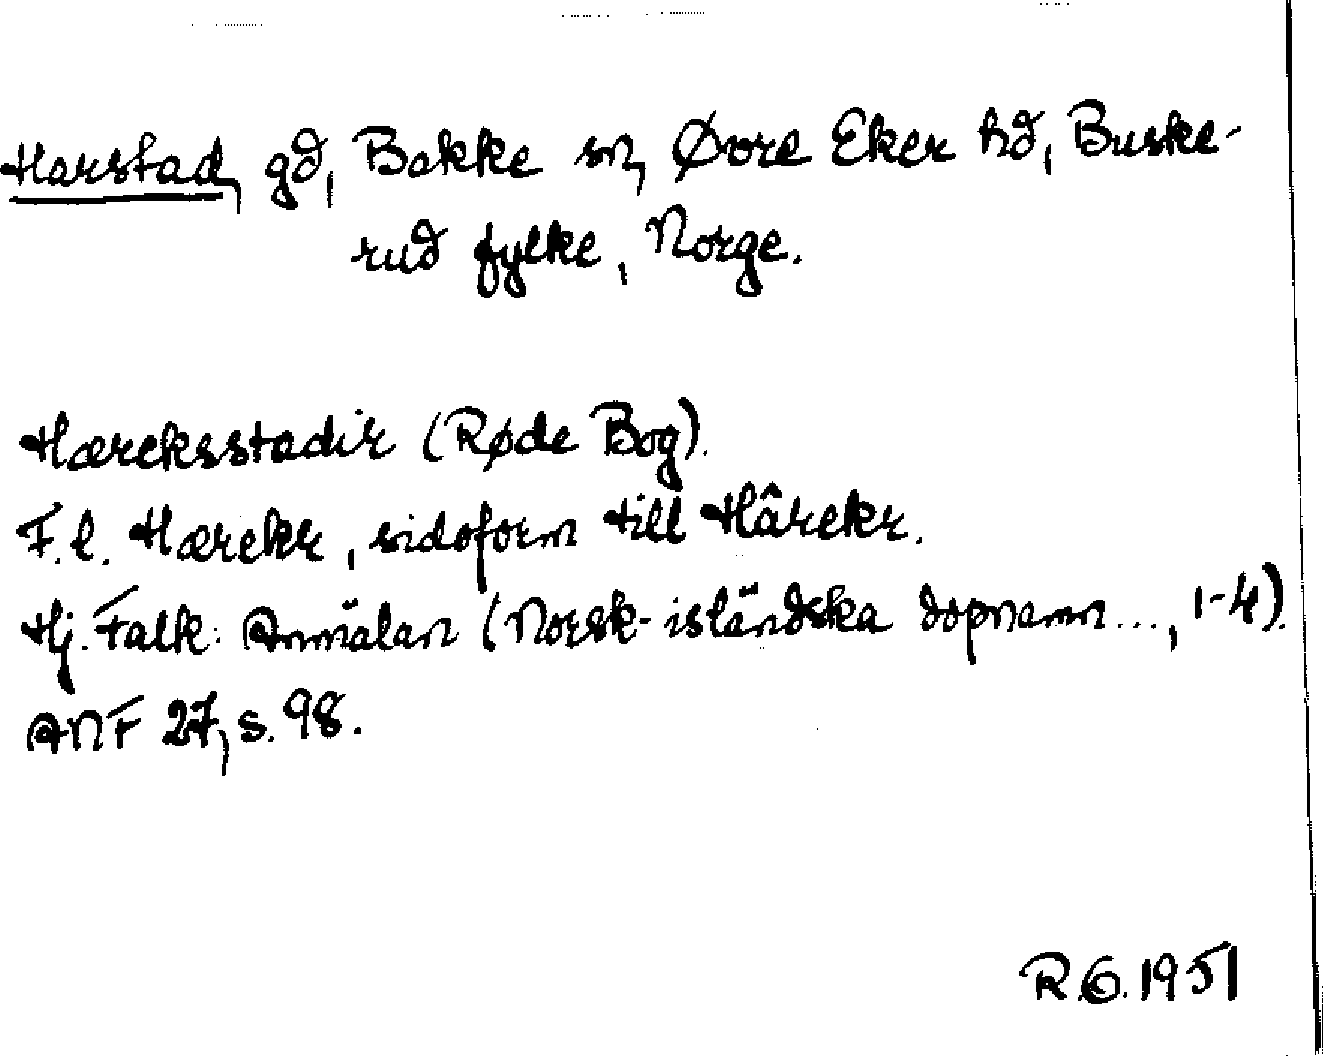 Harstad, gd, Bakke sn, Øvre Eker hd, Buske-
rud fylke, Norge.
Hæreksstadir (Røde Bog).
F.l. Hærekr, sidoform till Hârekr.
Hj. Falk: Anmälan (Norsk-isländska dopnamn..., 1-4).
ANF 27, s. 98.
R.G. 1951